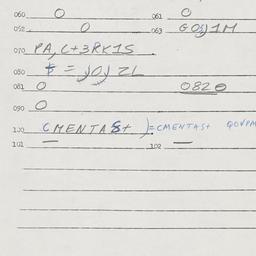 060 O 061 O
062 O 063 GOSJ1M
070 PA,C+3RK1S
080 $ = JOJ ZL
081 O 0820
090 O
100 CMENTAS+ )=CMENTAS+ QOVPA
101 — 102 —